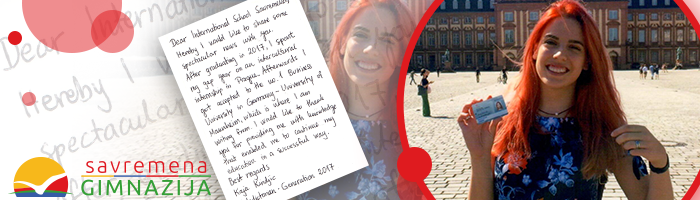 Dear International School Savremena,
Hereby I would like to share some
spectacular news with you.
After graduating in 2017, I spent
my gap year on an intercultural
internship in Prague. Afterwards I
got accepted to the no. 1 Business
University in Germany - University of
Mannheim, which is where I am
writing from. I would like to thank
you for providing me with knowledge
that enabled me to continue my
education in a successful way.
Best regards
Generation 2017
Dear International
Hereby I w
spectacular
savremena
GIMNAZIJA